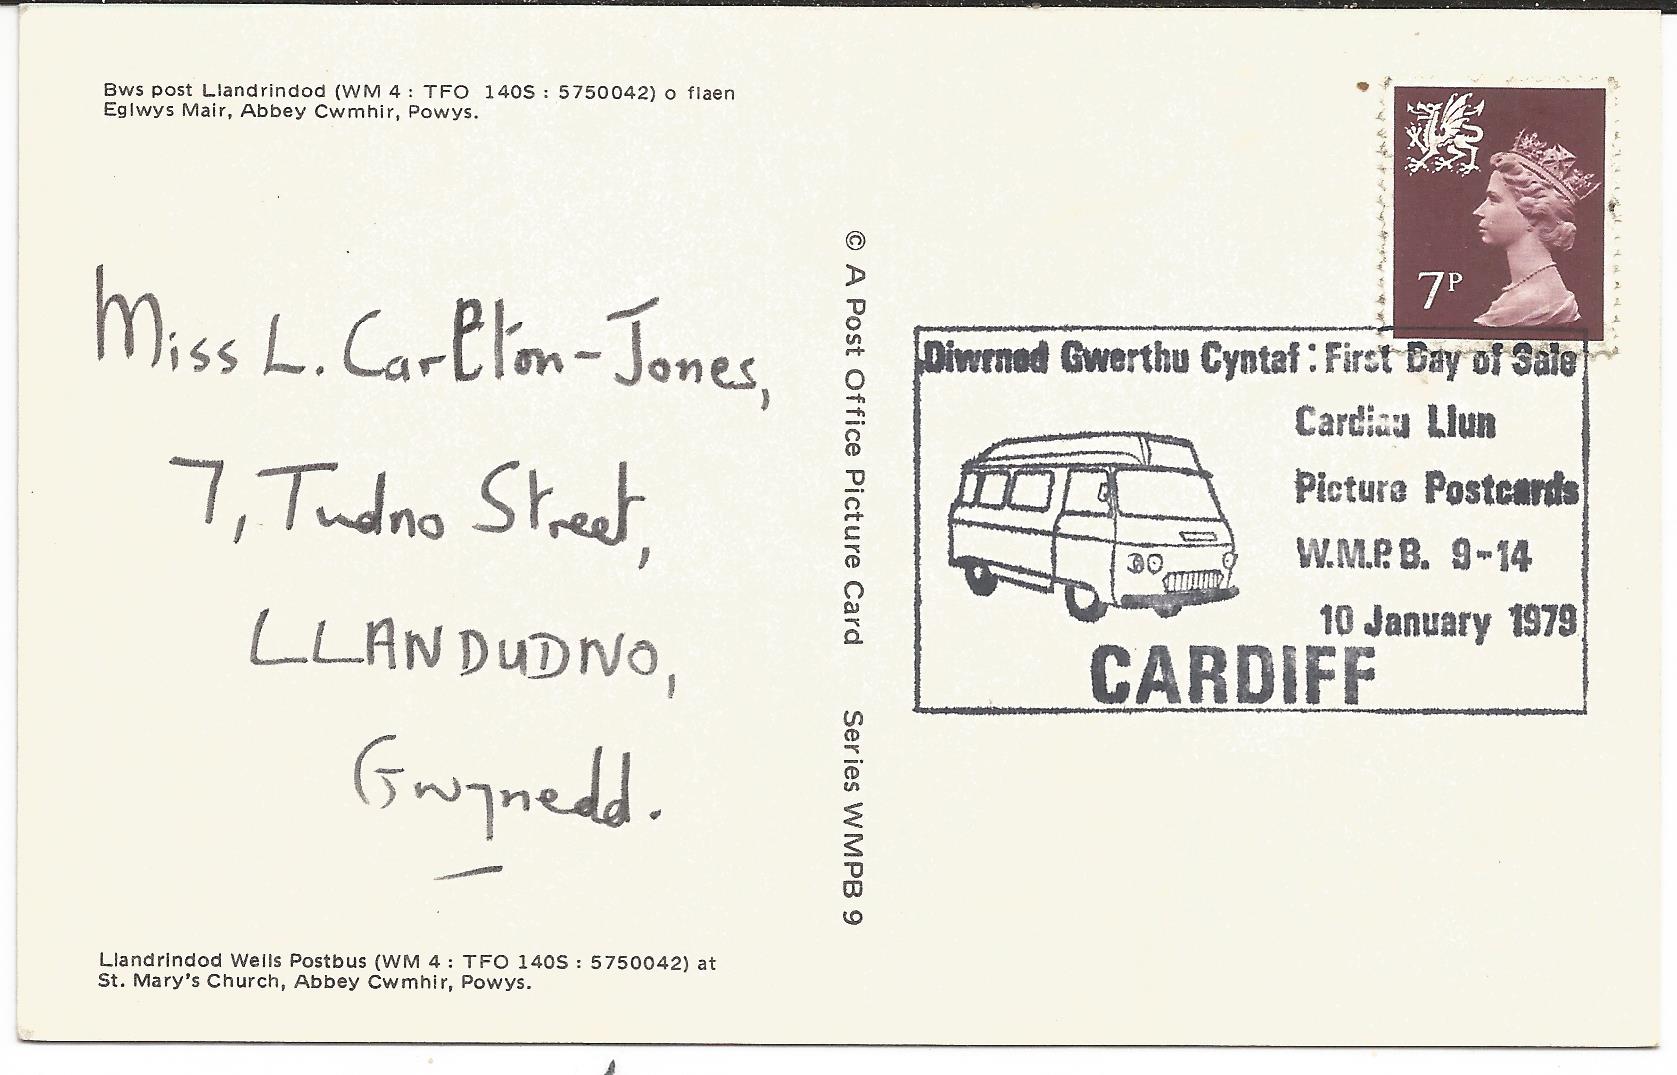 Bws post Llandrindod (WM 4 : TFO 140S : 5750042) o flaen
Eglwys Mair, Abbey Cwmhir, Powys.
Miss L. Carlton-Jones,
7, Tudno Street,
LLANDUDNO,
Gwynedd.
Llandrindod Wells Postbus (WM 4 : TFO 140S : 5750042) at
St. Mary's Church, Abbey Cwmhir, Powys.
© A Post Office Picture Card Series WMPB 9
7P
Diwrnod Gwerthu Cyntaf : First Day of Sale
Cardiau Llun
Picture Postcards
W.M.P.B. 9-14
10 January 1979
CARDIFF